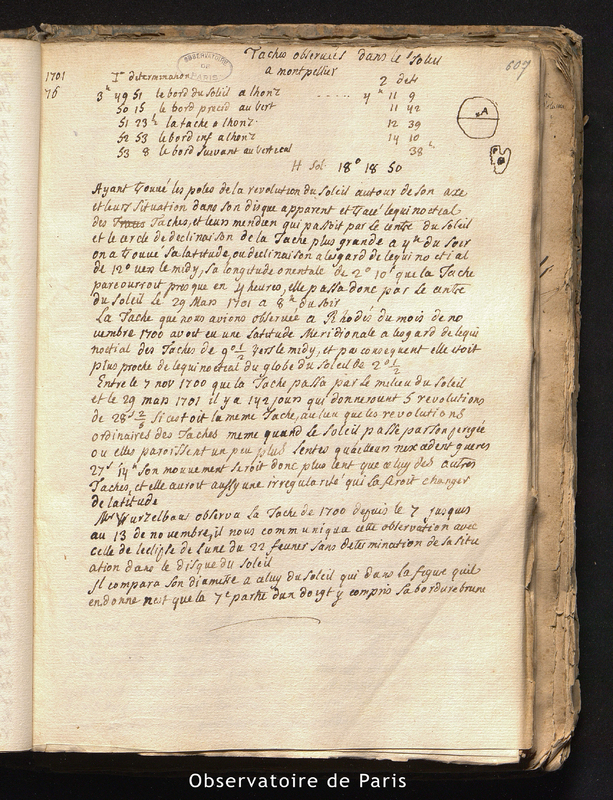 Taches observées dans le Soleil
a montpellier
607
OBSERVATOIRE DE PARIS
1701
1re determination
2 det
3h 49 51 le bord du soleil a lhorz ...... 4h 11 9
50 15 le bord preced au vert 11 42
51 23 la tache a lhorz 12 39
52 53 le bord inf a lhorz 14 10
53 8 le bord suivant au vertical 38
H Sol 18° 18 50
A
Ayant trouvé les poles de la revolution du Soleil autour de son axe
et leur situation dans son disque apparent et tracé lequinoctial
des Taches, et leur meridien qui passoit par le centre du Soleil
et le cercle de declinaison de la Tache plus grande a 4h du soir
on a trouvé sa latitude, ou declinaison a legard de lequinoctial
de 12° vers le midy, sa longitude orientale de 2° 10' que la Tache
parcourroit presque en 4 heures, elle passa donc par le centre
du Soleil le 29 Mars 1701 a 8h du soir
La Tache que nous avions observée a Rhodés du mois de no
vembre 1700 avoit eu une latitude Meridionale a legard de lequi
noctial des Taches de 9° 1/2 vers le midy, et par consequent elle etoit
plus proche de lequinoctial du globe du Soleil de 2° 1/2
Entre le 7 nov 1700 que la Tache passa par le milieu du Soleil
et le 29 mars 1701 il y a 142 jours qui donneroient 5 revolutions
de 28j 2/5 si cestoit la meme Tache, au lieu que les revolutions
ordinaires des Taches meme quand le Soleil passe par son perigée
ou elles paroissent un peu plus lentes quailleurs nexcedent gueres
27j 14h son mouvement seroit donc plus lent que celuy des autres
Taches, et elle auroit aussy une irregularité qui la feroit changer
de latitude
Mr Wurzelbaur observa la Tache de 1700 depuis le 7 jusques
au 13 de novembre, il nous communiqua cette observation avec
celle de leclipse de Lune du 22 fevrier sans determination de sa situ
ation dans le disque du Soleil
Il compara son diametre a celuy du Soleil qui dans la figure quil
en donne nest que la 7e partie dun doigt y compris la bordure brune
Observatoire de Paris